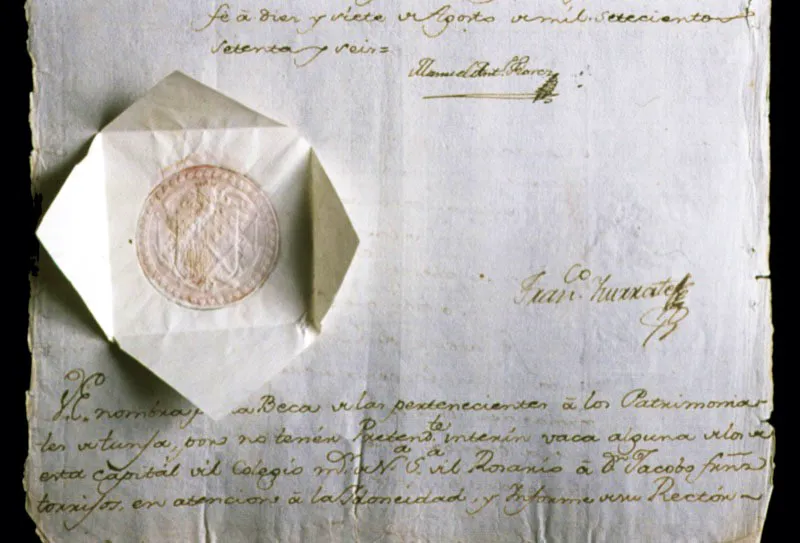 fè â diez y siete de Agosto de mil. setecientos
setenta y seis=
Manuel Ant.º Florez
Fran.co Yturrate
V.E. nombra para la Beca de las pertenecientes â los Patrimonia-
les de tunja, por no tenér Pretend.te interin vaca alguna de los de
esta capitál del Colegio m.r de N.a S.a del Rosario â D.n Jacobo frñz
torrijos, en atencion â la Idoneidad, y Informe de su Rectór-